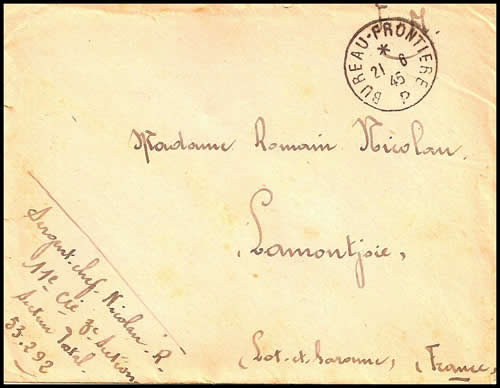 F. M.
BUREAU-FRONTIERE P
* 21 8 45
Madame Romain Nicolau.
Lamontjoie,
Lot-et-Garonne, (France,
Sergent-chef Nicolau. R.
11e Cie 3e Section
Secteur Postal.
53.292